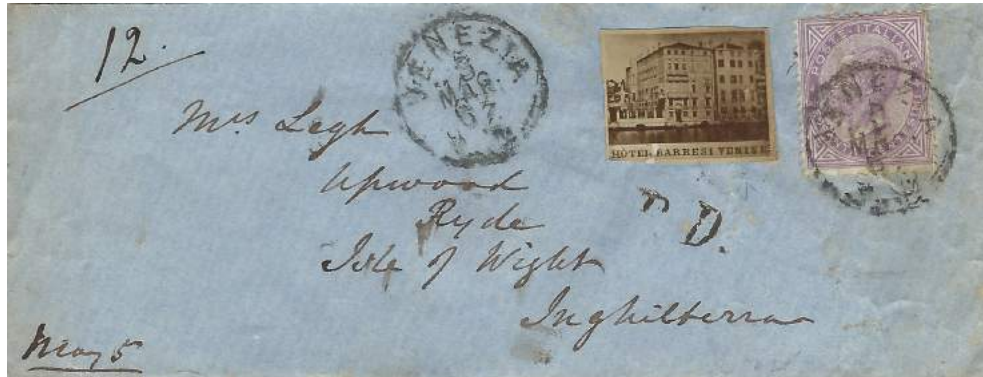 12.
VENEZIA
5
MAG
67
HÔTEL BARBESI VENISE
POSTE ITALIANE
VENEZIA
5
MAG
Mrs Legh
Upwood
Ryde
Isle of Wight
Inghilterra
P.D.
May 5